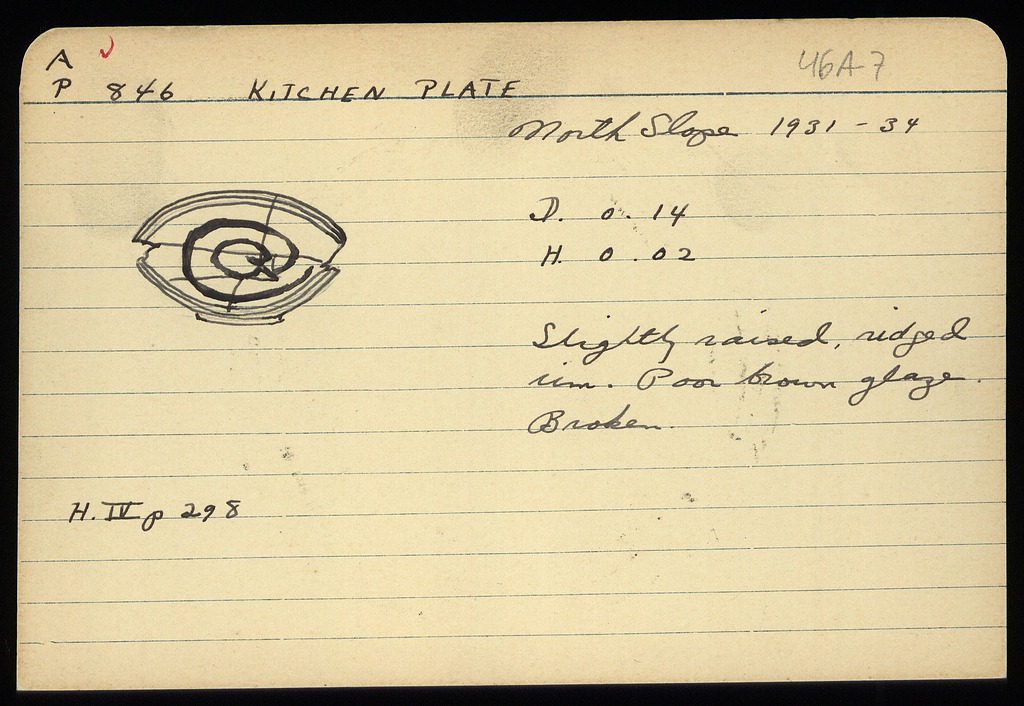 A
46A7
P 846 KITCHEN PLATE
North Slope 1931-34
D. 0.14
H. 0.02
Slightly raised, ridged
rim. Poor brown glaze.
Broken.
H. IV p 298